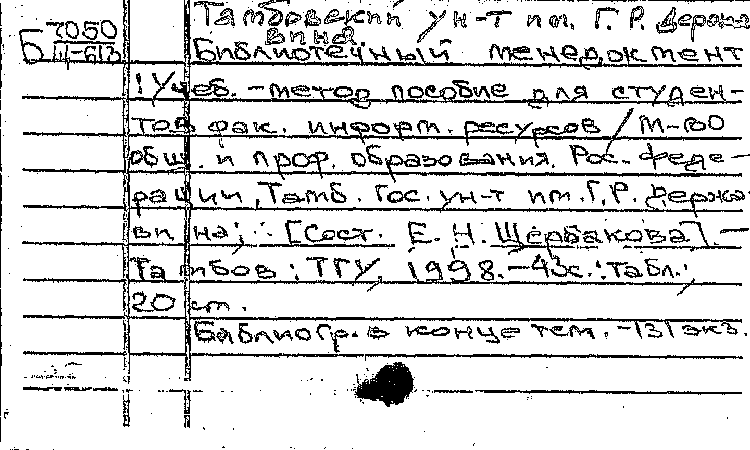 Тамбовский ун-т им. Г.Р. Держа
вина
7050
Б Щ-613
Библиотечный менеджмент
: Учеб. - метод пособие для студен-
тов фак. информ. ресурсов / М-во
общ. и проф. образования. Рос. Феде-
рации, Тамб. гос. ун-т им. Г.Р. Держа
вина; : [Сост. Е. Н. Щербакова]. -
Тамбов : ТГУ, 1998. - 43с. : табл.;
20 см.
Библиогр. в конце тем. - 131 экз.